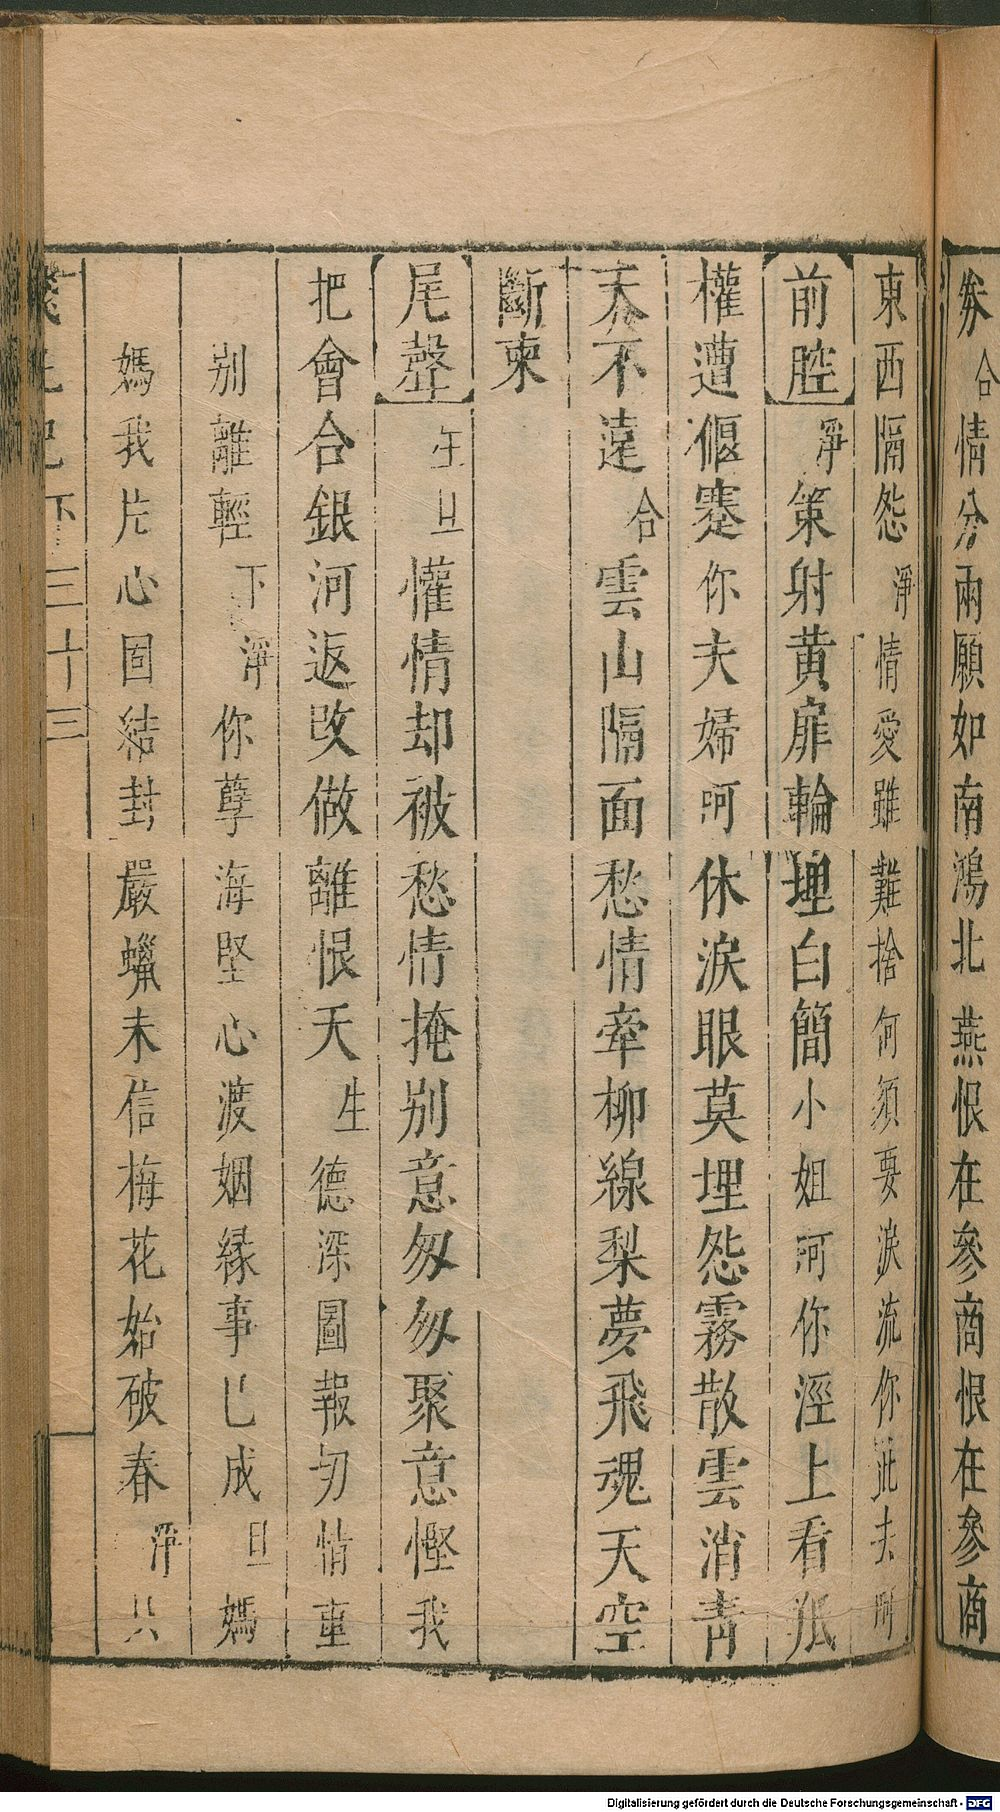 劵合情分兩願如南鴻北燕恨在參商恨在參商
東西隔怨淨情愛雖難捨何須要淚流你此去呵
前腔淨策射黄扉輪埋白簡小姐呵你涇上看羝
權遭偃蹇你夫婦呵休淚眼莫埋怨霧散雲消青
天不遠合雲山隔面愁情牽柳線梨夢飛魂天空
斷柬
尾聲生旦懽情却被愁情掩别意匆匆聚意慳我
把會合銀河返改做離恨天生德深圖報切情重
别離輕下淨你孽海堅心渡姻縁事已成旦媽
媽我片心固結封嚴蠟未信梅花始破春淨只
下三十三
Digitalisierung gefördert durch die Deutsche Forschungsgemeinschaft - DFG